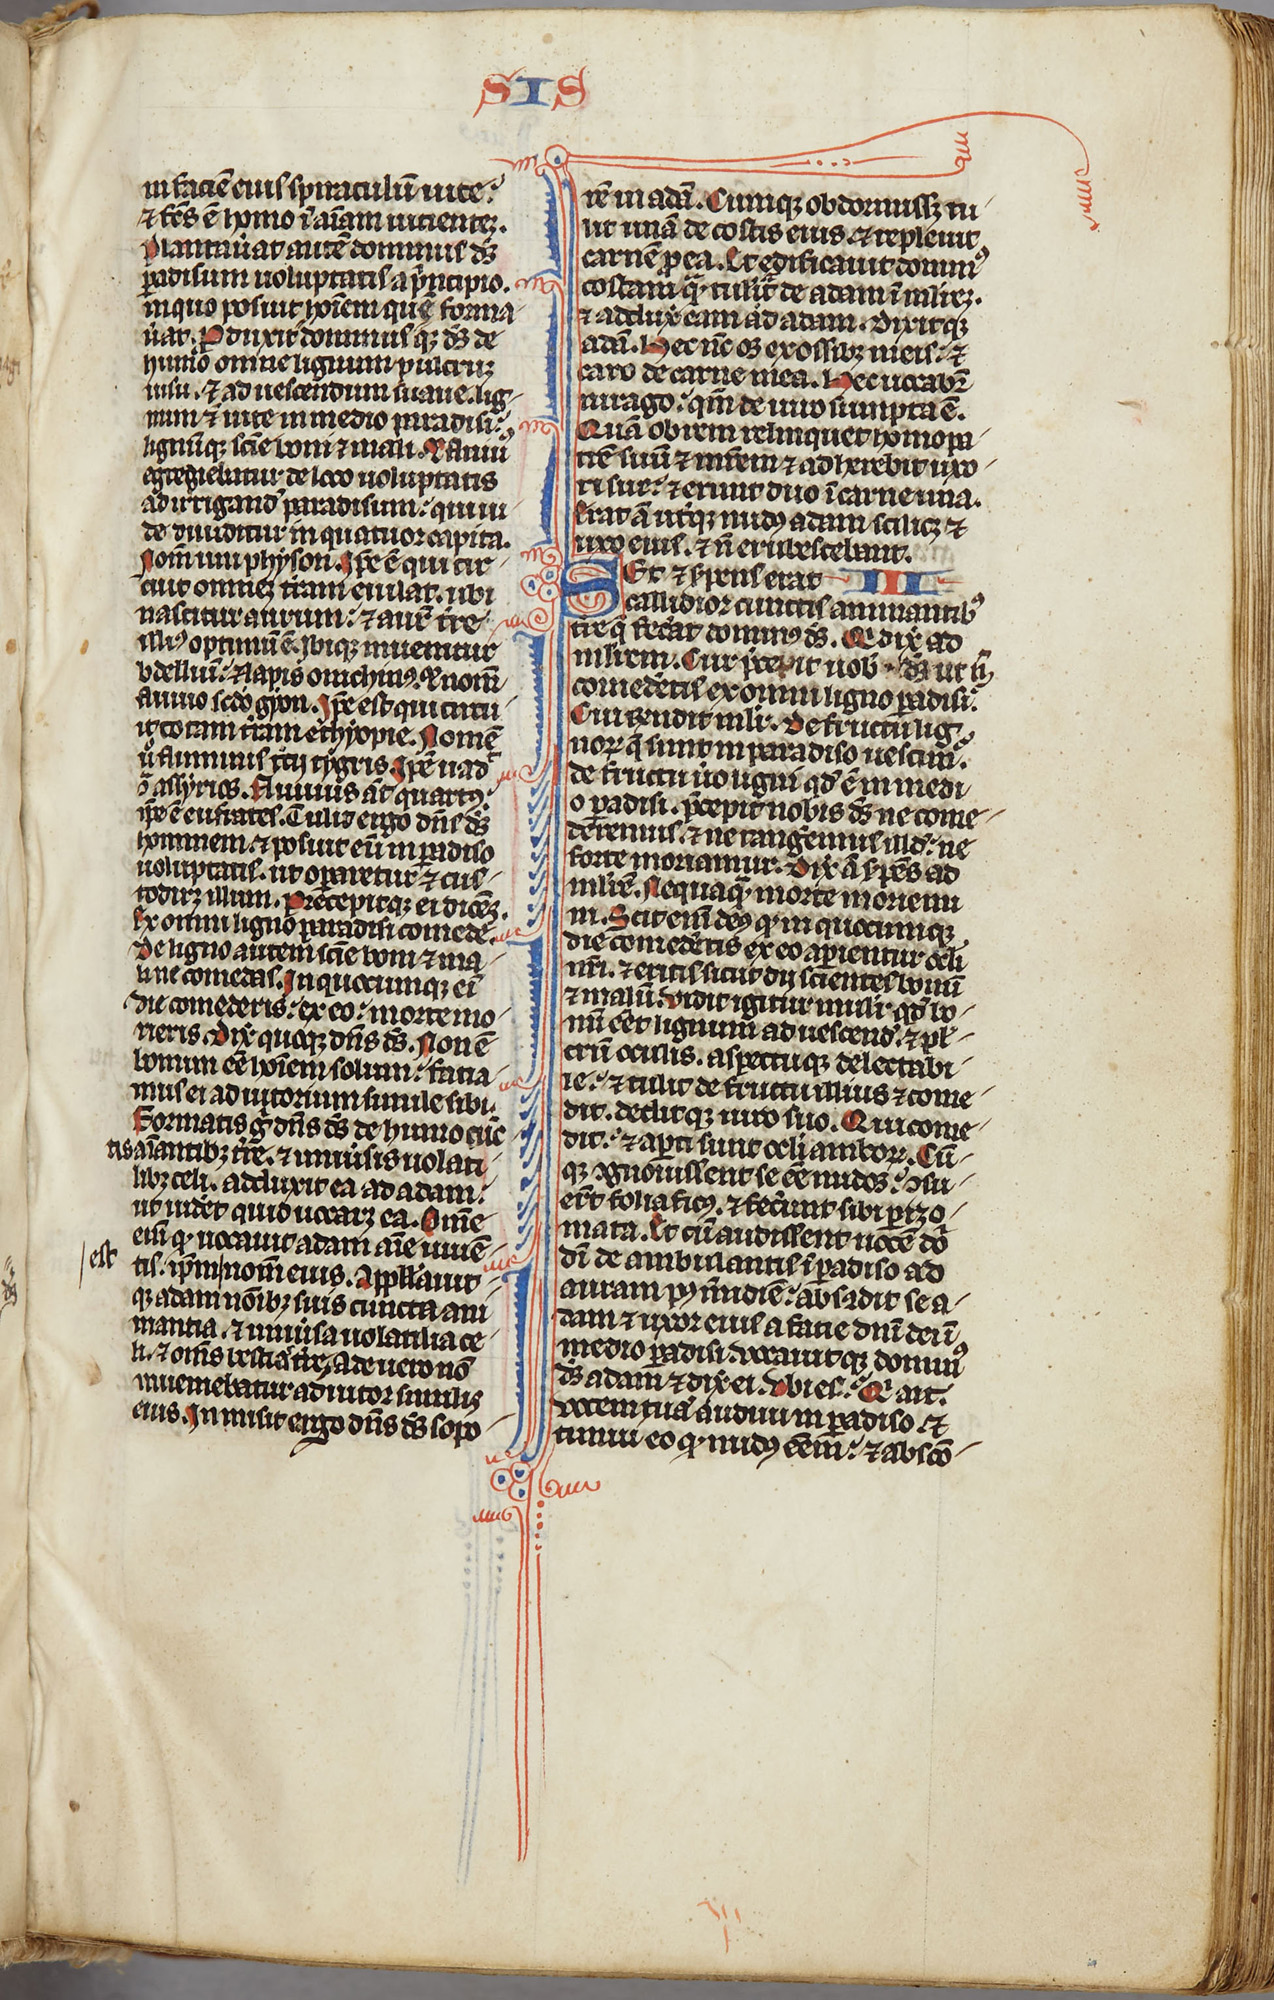 SIS
in faciē eius spiraculū uite.
⁊ fc̄s ē homo ī aīam uiuentez.
Plantauat autē dominus ds̄
padisum uoluptatis a pⁱncipio.
in quo posuit hoīem quē forma
uat. Pduxitꝙ dominus qꝫ ds̄ de
humo omne lignum pulcruꝫ
uisu. ⁊ ad uescendum suaue. lig
num ⁊ uite in medio paradisi.
lignūqꝫ scīe boni ⁊ mali. ⁊ fluuiꝰ
egrediebatur de loco uoluptatis
ad irrigand' paradisum. qui in
de diuiditur in quatuor capita.
Nom̄ uni physon. Ip̄e ē qui cir
cuit omnez trām euilat. ubi
nascitur aurum. ⁊ aur̄ tr̄e
illiꝰ optimū ē. Ibiqꝫ inuenitur
bdelliū. ⁊ lapis onichinꝰ. ⁊ nom̄
fluuio scd̄o gyon. Ip̄e est qui circu
it totam trām ethyopie. Nomē
ū fluminis tcij tygris. Ip̄e uad'
ꝯ̄ assyrios. Fluuius aūt quartꝰ.
ip̄e ē eufrates. Tulit ergo dn̄s ds̄
hominem. ⁊ posuit eū in padiso
uoluptatis. ut oparetur ⁊ cus
todirꝫ illum. Precepitqꝫ ei dicēs.
Ex omni ligno paradisi comede.
De ligno autem scīe boni ⁊ ma
li ne comedas. In quocumqꝫ eī
die comederis. ex eo. morte mo
rieris. Dix̄ quoqꝫ dn̄s ds̄. Non ē
bonum eē hoīem solum. facia
mus ei adiutorium simile sibi.
Formatis gͦ dn̄s ds̄ de humo cūc
tis aīantibꝫ tr̄e. ⁊ uniuersis uolati
libꝫ celi. adduxit ea ad adam.
ut uidēt quid uocarꝫ ea. Omē
eīn qꝫ uocauit adam aīe uiuē
tis. ip̄m nom̄ eius. Appellauit
est
qꝫ adam noībꝫ suis cuncta ani
mantia. ⁊ uniūsa uolatilia ce
li. ⁊ om̄s bestias tr̄e. Ade uero nō
inueniebatur adiutor similis
eius. Inmisit ergo dn̄s ds̄ sopo
rē in adā. Cumqꝫ obdormissꝫ tu
lit unā de costis eius. ⁊ repleuit
carnē p ea. Et edificauit dominꝰ
costam qͣ tulit̄ de adam ī mlierꝫ.
⁊ adduxͭ eam ad adam. Dixitqꝫ
adā. Hec nc̄ os ex ossibꝫ meis. ⁊
caro de carne mea. Hec uocabr̄
uirago. qm̄ de uiro sumpta ē.
Quā obrem relinquet homo pa
trē suū ⁊ mr̄em ⁊ adherebit uxo
ri sue. ⁊ erunt duo ī carne una.
Erat ā utqꝫ nudꝰ adam scilicꝫ ⁊
uxo eius. ⁊ n̄ erubescebant.
SEt ⁊ spens erat III
callidior cunctis animantibꝰ
tr̄e q̄ fecat dominꝰ ds̄. Qͥ dix̄ ad
mlirem. Cur p̄cepit uob' ds̄ ut n̄
comedētis ex omni ligno padisi.
Cui rendit mli'r. De fructu lig
noꝝ q̄ sunt in paradiso uescim̄.
de fructu ūo ligni qd̄ ē in medi
o padisi. p̄cepit nobis ds̄ ne come
deremus. ⁊ ne tangemus illd'. ne
forte moriamur. Dix̄ ā spēs ad
mlirē. Nequaqͣ morte moriemi
ni. Scit enī deꝰ qꝫ in quocumqꝫ
die comedetis ex eo apientur oc̄li
nr̄i. ⁊ eritis sicut dij scientes bonū
⁊ malū. Vidit igitur muli'r qd̄ bo
nū eēt lignum ad uescend'. ⁊ pl'
crū oculis. aspectuqꝫ delectabi
le. ⁊ tulit de fructu illius ⁊ come
dit. deditqꝫ uiro suo. Qui come
dit. ⁊ apti sunt oc̄li amboꝝ. Cū
qꝫ ꝯgnouissent se eē nudos. ꝯsu
ert̄ folia ficꝰ. ⁊ fecūnt sibi pizo
mata. Et cū audissent uocē do
dī de ambulantis ī padiso ad
auram pꝰ m̄idiē. abscdit se a
dam ⁊ uxor eius a facie dnī dei ī
medio padisi. Vocauitqꝫ dominꝰ
ds̄ adam ⁊ dix̄ ei. Vbi es. Qͥ ait.
Vocem tuā audiui in padiso. ⁊
timui eo qꝫ nudꝰ eēm. ⁊ abscō